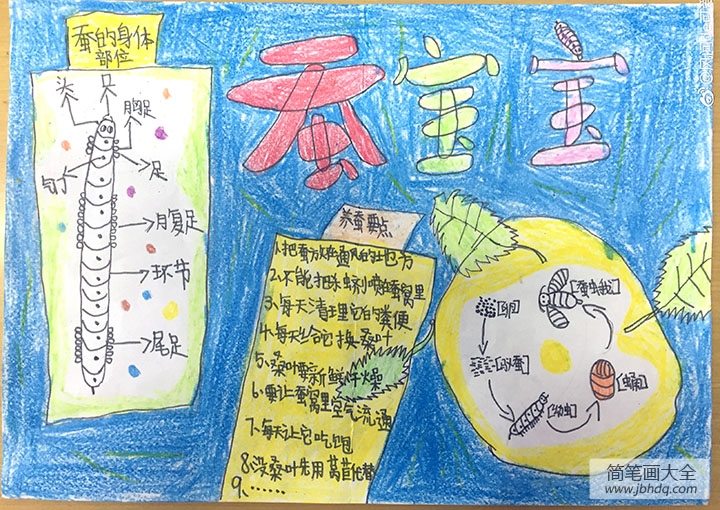 蚕的身体
部位
蚕宝宝
头
口
胸足
足
腹足
环节
尾足
养蚕要点
1.把蚕放在通风的地方
3.每天清理它的粪便
4.每天给它换桑叶
5.桑叶要新鲜干燥
6.要让蚕窝里空气流通
7.每天让它吃饱
8.没桑叶先用莴苣代替
9、……
[卵]
[蚁蚕]
[幼虫]
[蛹]
[蚕蛾]
简笔画大全
www.jbhdq.com